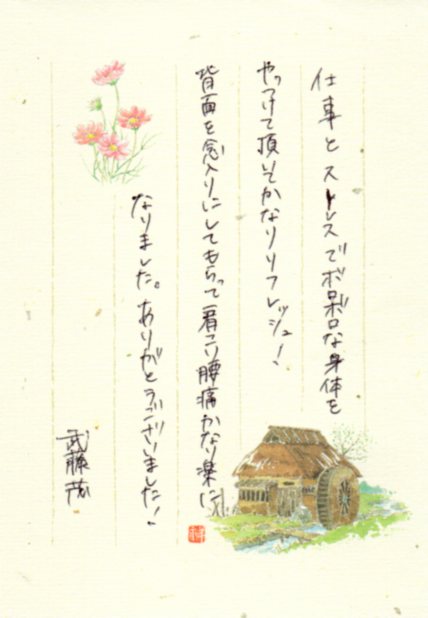 仕事とストレスでボロボロな身体を
やっつけて頂いてかなりリフレッシュ！
背面を念入りにしてもらって肩こり腰痛かなり楽に
なりました。ありがとうございました！
武藤茂